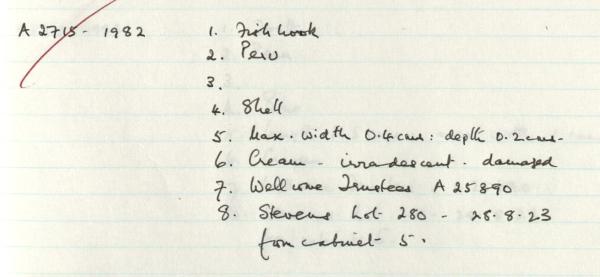 A 2715 - 1982 1. Fish hook
2. Peru
3.
4. Shell
5. Max. width 0.4cms: depth 0.2cms.
6. Cream - irradescent. damaged
7. Wellcome Trustees A 25890
8. Stevens Lot 280 - 28.8.23
from cabinet 5.